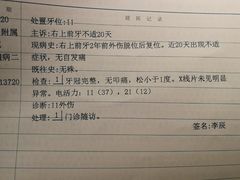 提医记录
20
处置牙位:11
附属
主诉:右上前牙不适20天
现病史:右上前牙2年前外伤脱位后复位。近20天出现不适
症状,无自发痛
病二
既往史:无殊。
13720
检查:1 牙冠完整,无叩痛,松小于1度。X线片未见明显
异常。电活力:11(37),21(12)
诊断:11外伤
处理:1 门诊随访。
签名:李辰